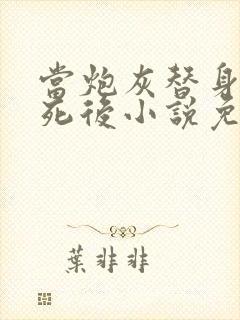 當炮灰替身
死後小說免
葉非非